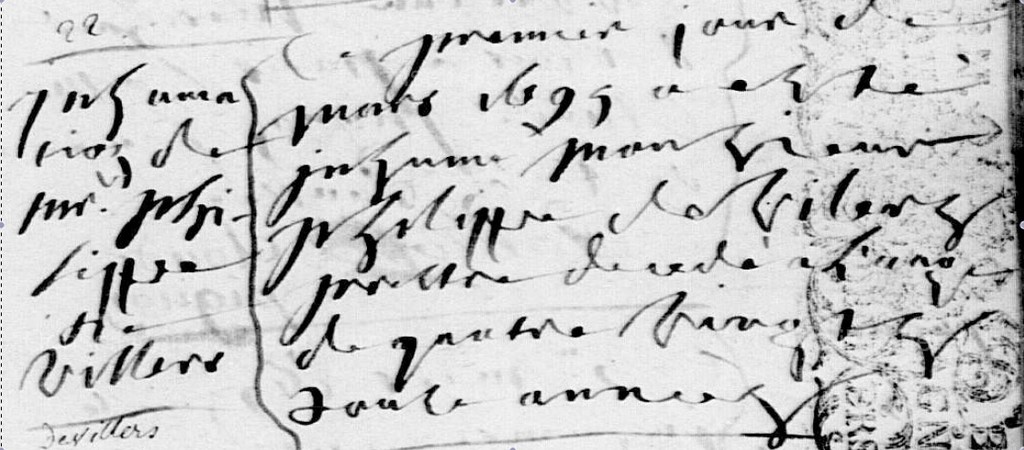 22
inhuma
tion de
mr. phi-
lippe
de
villers
devillers
Ce premier jour de
mars 1695 a esté
inhumé monsieur
philippe de Villers
prestre decedé a l'aage
de quatre vingts
douze années